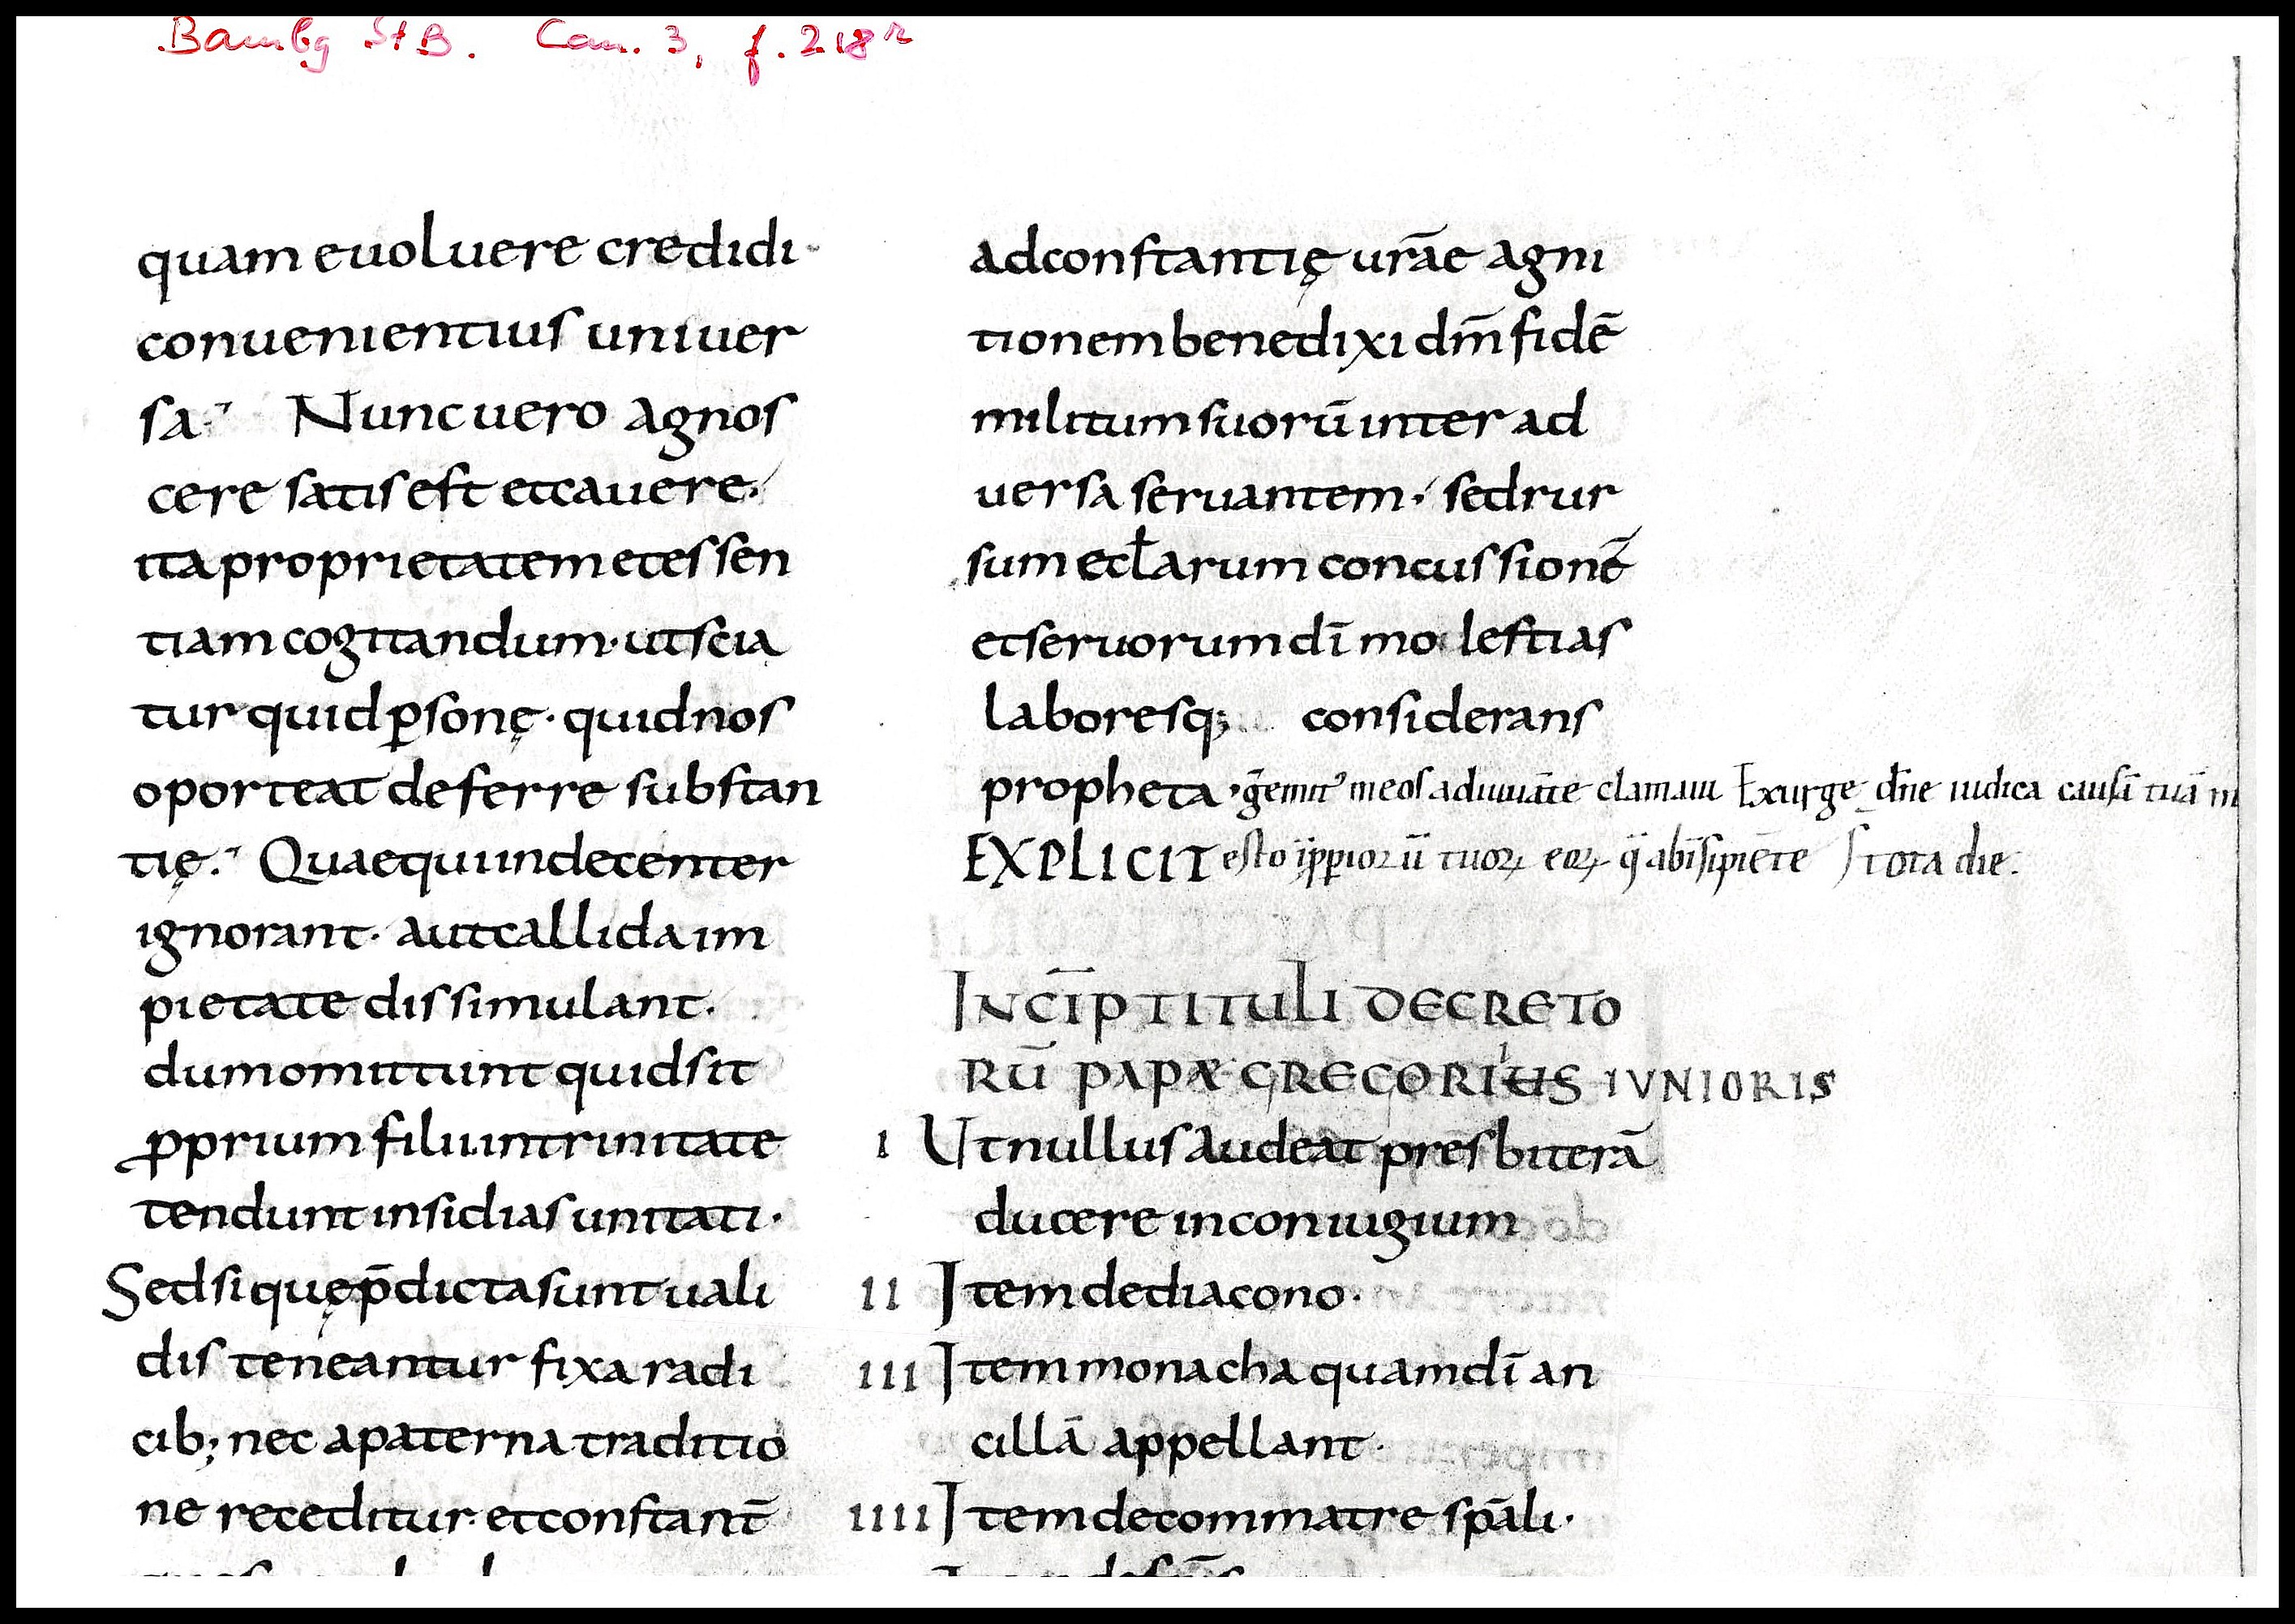 Bambg StB. Can. 3, f. 218r
quam euoluere credidi·
conuenientius uniuer
sa· Nunc uero agnos
cere satis est et cauere·
ita proprietatem et essen
tiam cogitandum· ut scia
tur quid p̲sonę· quid nos
oporteat deferre substan
tię· Quae qui indecenter
ignorant· aut callida im
pietate dissimulant·
dum omittunt quid sit
ꝓprium filii in trinitate
tendunt insidias unitati·
Sed si quę p̄dicta sunt uali
dis teneantur fixa radi
cib; nec a paterna traditio
ne receditur· et constant̄
ad constantię ur̄ae agni
tionem benedixi dm̄ fidē
militum suorū inter ad
uersa seruantem· sed rur
sum eclarum concussionē
et seruorum dī molestias
laboresq; considerans
propheta· gemit᾽ meos adiuuāte clamaui Exurge dn̄e iudica causā tuā
EXPLICIT esto īp̲p̲ioꝝ tuoꝝ eoꝝ q̄ ab īsipiēte st̄ tota die·
INCĪP TITULI DECRETO
RŪ PAPÆ GREGORIUS IVNIORIS
I Ut nullus audeat presbiterā
ducere in coniugium
II Item de diacono·
III Item monacha quam dī an
cillā appellant·
IIII Item de commatre sp̄ali·